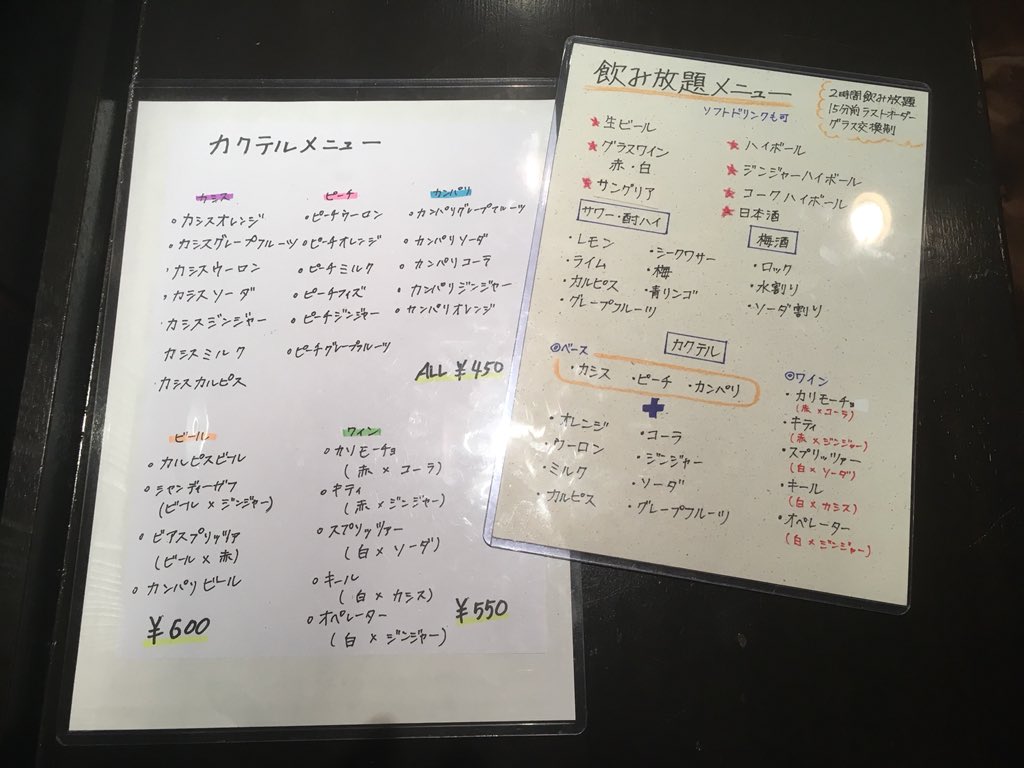 カクテルメニュー
カシス
カシスオレンジ
カシスグレープフルーツ
カシスウーロン
カシスソーダ
カシスジンジャー
カシスミルク
カシスカルピス
ピーチ
ピーチウーロン
ピーチオレンジ
ピーチミルク
ピーチフィズ
ピーチジンジャー
ピーチグレープフルーツ
カンパリ
カンパリグレープフルーツ
カンパリソーダ
カンパリコーラ
カンパリジンジャー
カンパリオレンジ
ALL ¥450
ビール
カルピスビール
シャンディーガフ
(ビール×ジンジャー)
ビアスプリッツァ
(ビール×赤)
カンパリビール
¥600
ワイン
カリモーチョ
(赤×コーラ)
キティ
(赤×ジンジャー)
スプリッツァー
(白×ソーダ)
キール
(白×カシス)
オペレーター
(白×ジンジャー)
¥550
飲み放題メニュー
ソフトドリンクも可
2時間飲み放題
15分前ラストオーダー
グラス交換制
★生ビール
★グラスワイン
赤・白
★サングリア
★ハイボール
★ジンジャーハイボール
★コークハイボール
★日本酒
サワー・酎ハイ
・レモン
・ライム
・カルピス
・グレープフルーツ
・シークワサー
・梅
・青リンゴ
梅酒
・ロック
・水割り
・ソーダ割り
カクテル
◎ベース
・カシス ・ピーチ ・カンペリ
+
・オレンジ
・ウーロン
・ミルク
・カルピス
・コーラ
・ジンジャー
・ソーダ
・グレープフルーツ
◎ワイン
・カリモーチョ
(赤×コーラ)
・キティ
(赤×ジンジャー)
・スプリッツァー
(白×ソーダ)
・キール
(白×カシス)
・オペレーター
(白×ジンジャー)